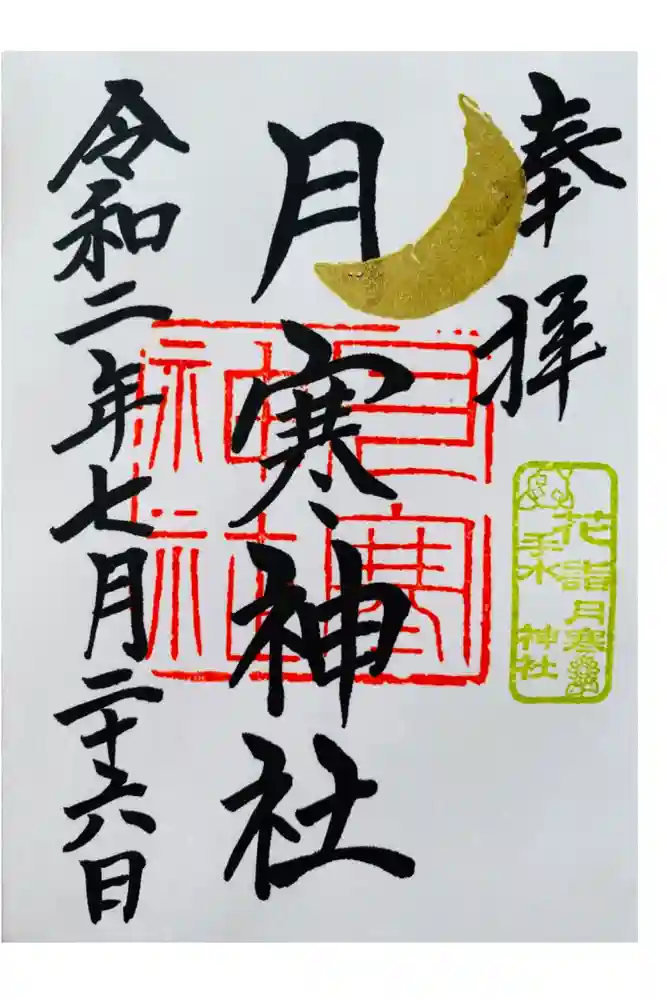 奉拝
月寒神社
令和二年七月二十六日
月寒神社
花詣
手水
月寒
神社